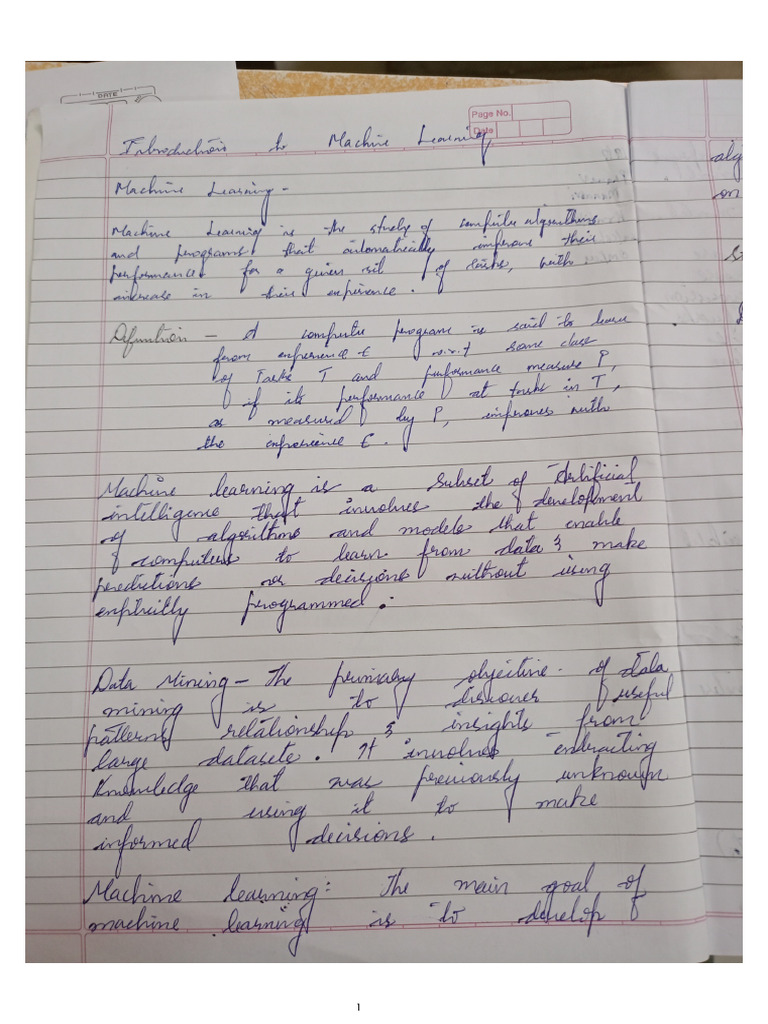 DATE
Page No.
Date
Introduction to Machine Learning
Machine Learning -
Machine Learning is the study of computer algorithms
and programs that automatically improve their
performance for a given set of tasks, with
increase in their experience.
Definition - A computer program is said to learn
from experience E w.r.t some class
of Tasks T and performance measure P,
if its performance at tasks in T,
as measured by P, improves with
the experience E.
Machine learning is a subset of Artificial
intelligence that involves the development
of algorithms and models that enable
computers to learn from data & make
predictions or decisions without using
explicitly programmed.
Data Mining - The primary objective of data
mining is to discover useful
patterns relationship & insights from
large datasets. It involves extracting
Knowledge that was previously unknown
and using it to make
informed decisions.
Machine learning: The main goal of
machine learning is to develop
alg
on
1